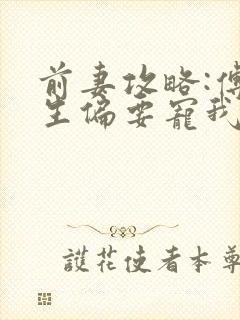 前妻攻略:傅
生偏要宠我
護花使者本尊